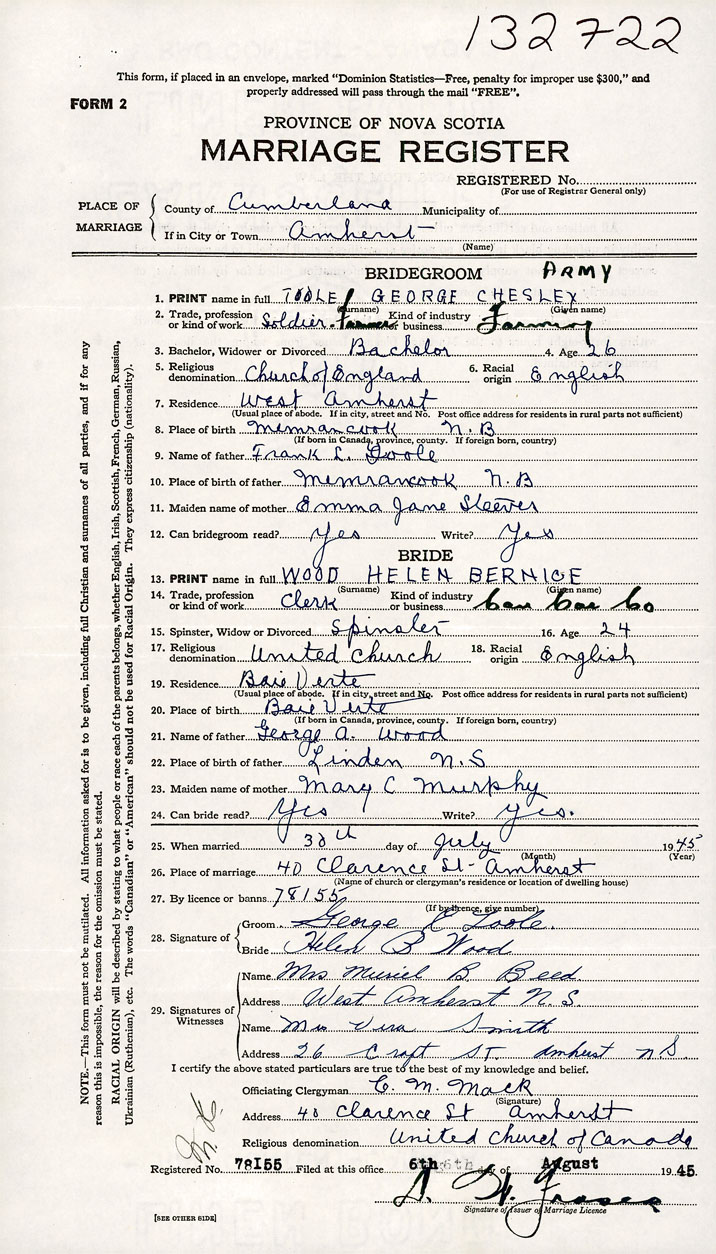 132722
This form, if placed in an envelope, marked "Dominion Statistics—Free, penalty for improper use $300," and
properly addressed will pass through the mail "FREE".
FORM 2
PROVINCE OF NOVA SCOTIA
MARRIAGE REGISTER
REGISTERED No.
(For use of Registrar General only)
PLACE OF MARRIAGE
County of Cumberland Municipality of
If in City or Town Amherst
(Name)
BRIDEGROOM ARMY
1. PRINT name in full TOOLE, GEORGE CHESLEY
(Surname) (Given name)
2. Trade, profession or kind of work Soldier. Farmer Kind of industry or business Farming
3. Bachelor, Widower or Divorced Bachelor 4. Age 26
5. Religious denomination Church of England 6. Racial origin English
7. Residence West Amherst
(Usual place of abode. If in city, street and No. Post office address for residents in rural parts not sufficient)
8. Place of birth Memramcook N.B
(If born in Canada, province, county. If foreign born, country)
9. Name of father Frank L. Toole
10. Place of birth of father Memramcook N.B
11. Maiden name of mother Emma Jane Sleeves
12. Can bridegroom read? Yes Write? Yes
BRIDE
13. PRINT name in full WOOD HELEN BERNICE
(Surname) (Given name)
14. Trade, profession or kind of work Clerk Kind of industry or business Can Car Co
15. Spinster, Widow or Divorced Spinster 16. Age 24
17. Religious denomination United Church 18. Racial origin English
19. Residence Baie Verte
(Usual place of abode. If in city, street and No. Post office address for residents in rural parts not sufficient)
20. Place of birth Baie Verte
(If born in Canada, province, county. If foreign born, country)
21. Name of father George A. Wood
22. Place of birth of father Linden N.S
23. Maiden name of mother Mary C Murphy
24. Can bride read? Yes Write? Yes.
25. When married 30th day of July 1945
(Month) (Year)
26. Place of marriage 40 Clarence St- Amherst
(Name of church or clergyman's residence or location of dwelling house)
27. By licence or banns 78155
(If by licence, give number)
28. Signature of
Groom George C Toole.
Bride Helen B Wood
29. Signatures of Witnesses
Name Mrs Muriel B. Beed
Address West Amherst N.S.
Name Mrs Vera Smith
Address 26 Croft St. Amherst N S
I certify the above stated particulars are true to the best of my knowledge and belief.
Officiating Clergyman C. M. Mack
(Signature)
Address 40 Clarence St Amherst
Religious denomination United Church of Canada
Registered No. 78155 Filed at this office 6th 6th day of August 1945.
D. W. Fraser
Signature of Issuer of Marriage Licence
[SEE OTHER SIDE]
NOTE.—This form must not be mutilated. All information asked for is to be given, including full Christian and surnames of all parties, and if for any
reason this is impossible, the reason for the omission must be stated.
RACIAL ORIGIN will be described by stating to what people or race each of the parents belongs, whether English, Irish, Scottish, French, German, Russian,
Ukrainian (Ruthenian), etc. The words "Canadian" or "American" should not be used for Racial Origin. They express citizenship (nationality).